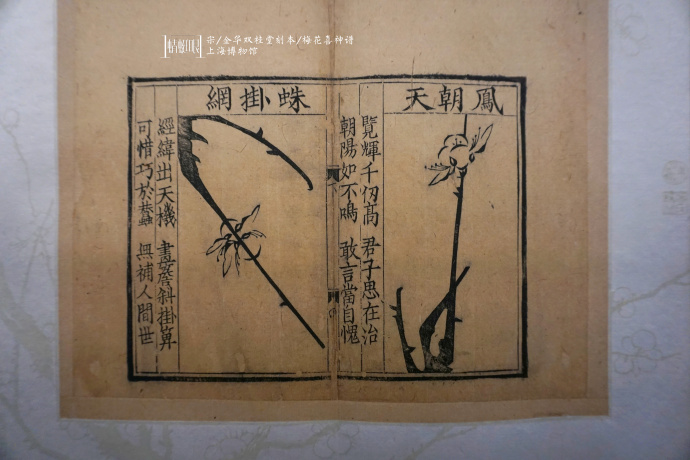 宗/金华双桂堂刻本/梅花喜神谱
上海博物馆
鳳朝天
覽輝千仞高 君子思在治
朝陽如不鳴 敢言當自愧
蛛掛網
經緯出天機 畫簷斜掛箅
可惜巧於蠶 無補人間世